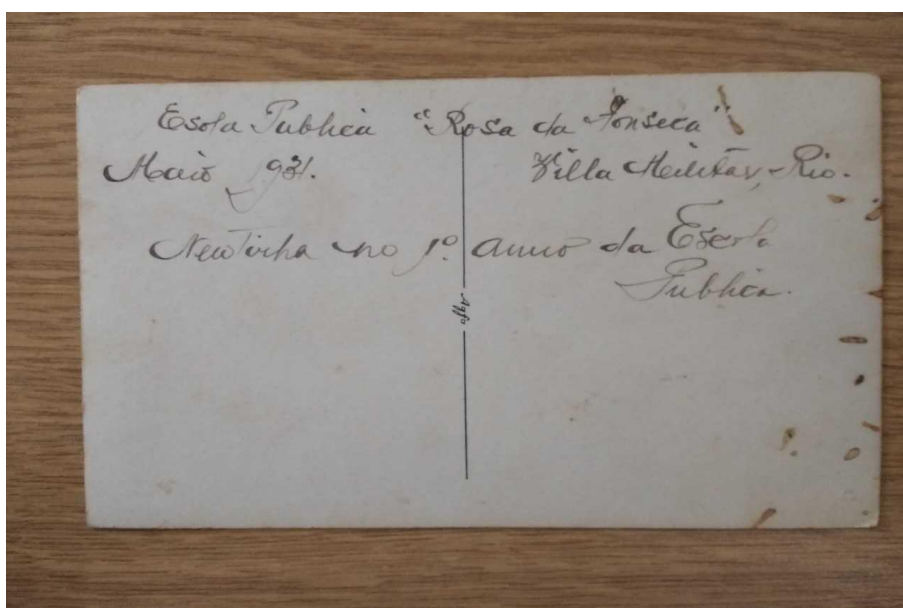 Escola Publica "Rosa da Fonseca"
Maio 1931. Villa Militar, Rio.
Newtinha no 1º. anno da Escola
Publica.
Agfa